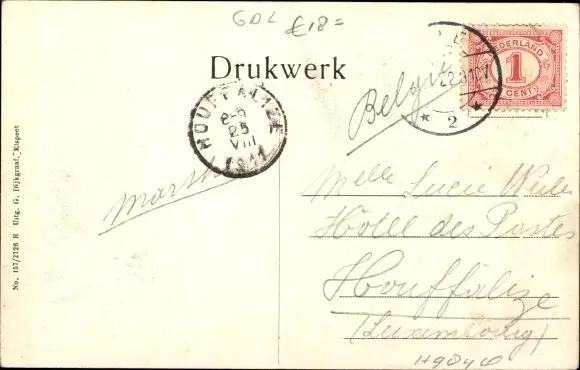 GDL £18=
Drukwerk
NEDERLAND
1
CENT
België
2
HOUFFALIZE
8-9
25
VIII
1911
Melle Lucie
Hotel des Postes
Houffalize
(Luxembourg)
H9846
No. 157/2726 R Uitg. G. Dijkgraaf, Elspeet